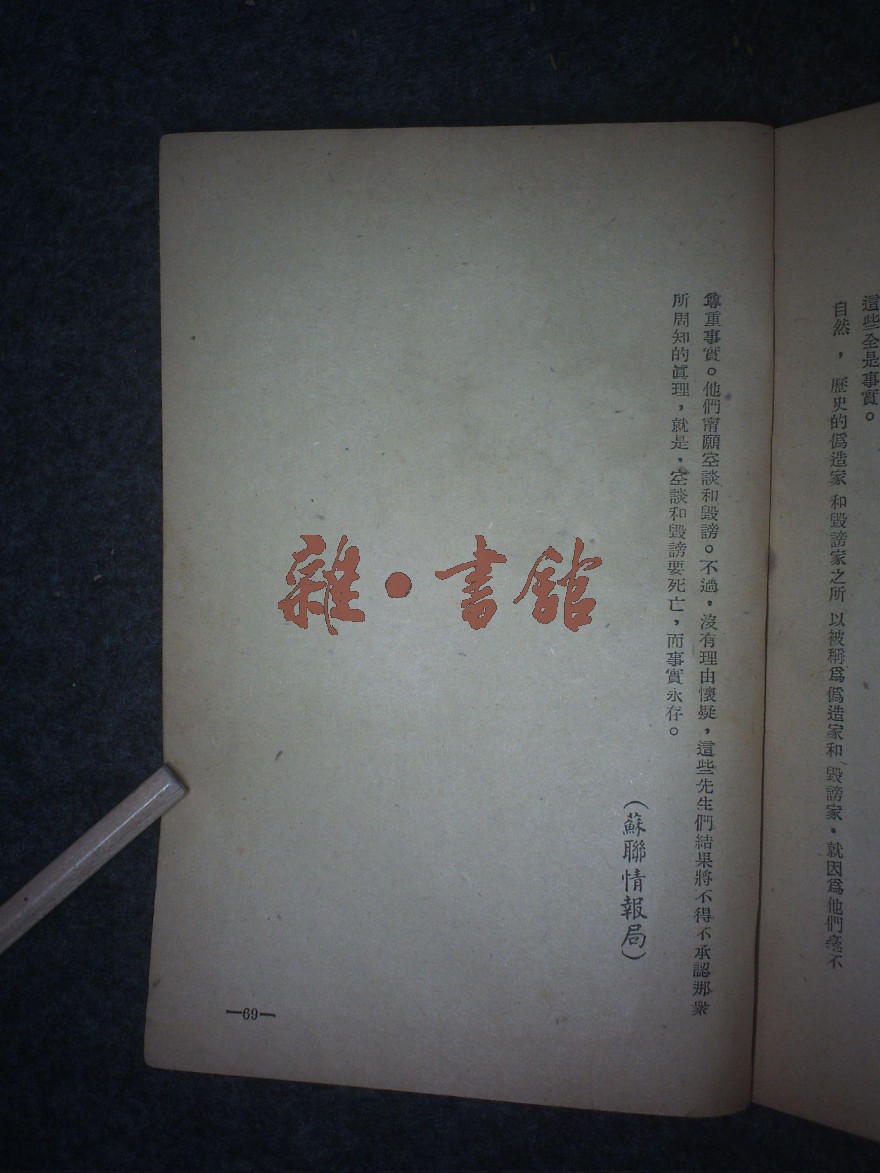 這些全是事實。
自然，歷史的僞造家和毀謗家之所以被稱爲僞造家和毀謗家，就因爲他們毫不
尊重事實。他們甯願空談和毀謗。不過，沒有理由懷疑，這些先生們結果將不得不承認那衆
所周知的眞理，就是，空談和毀謗要死亡，而事實永存。
（蘇聯情報局）
雜·書館
—69—